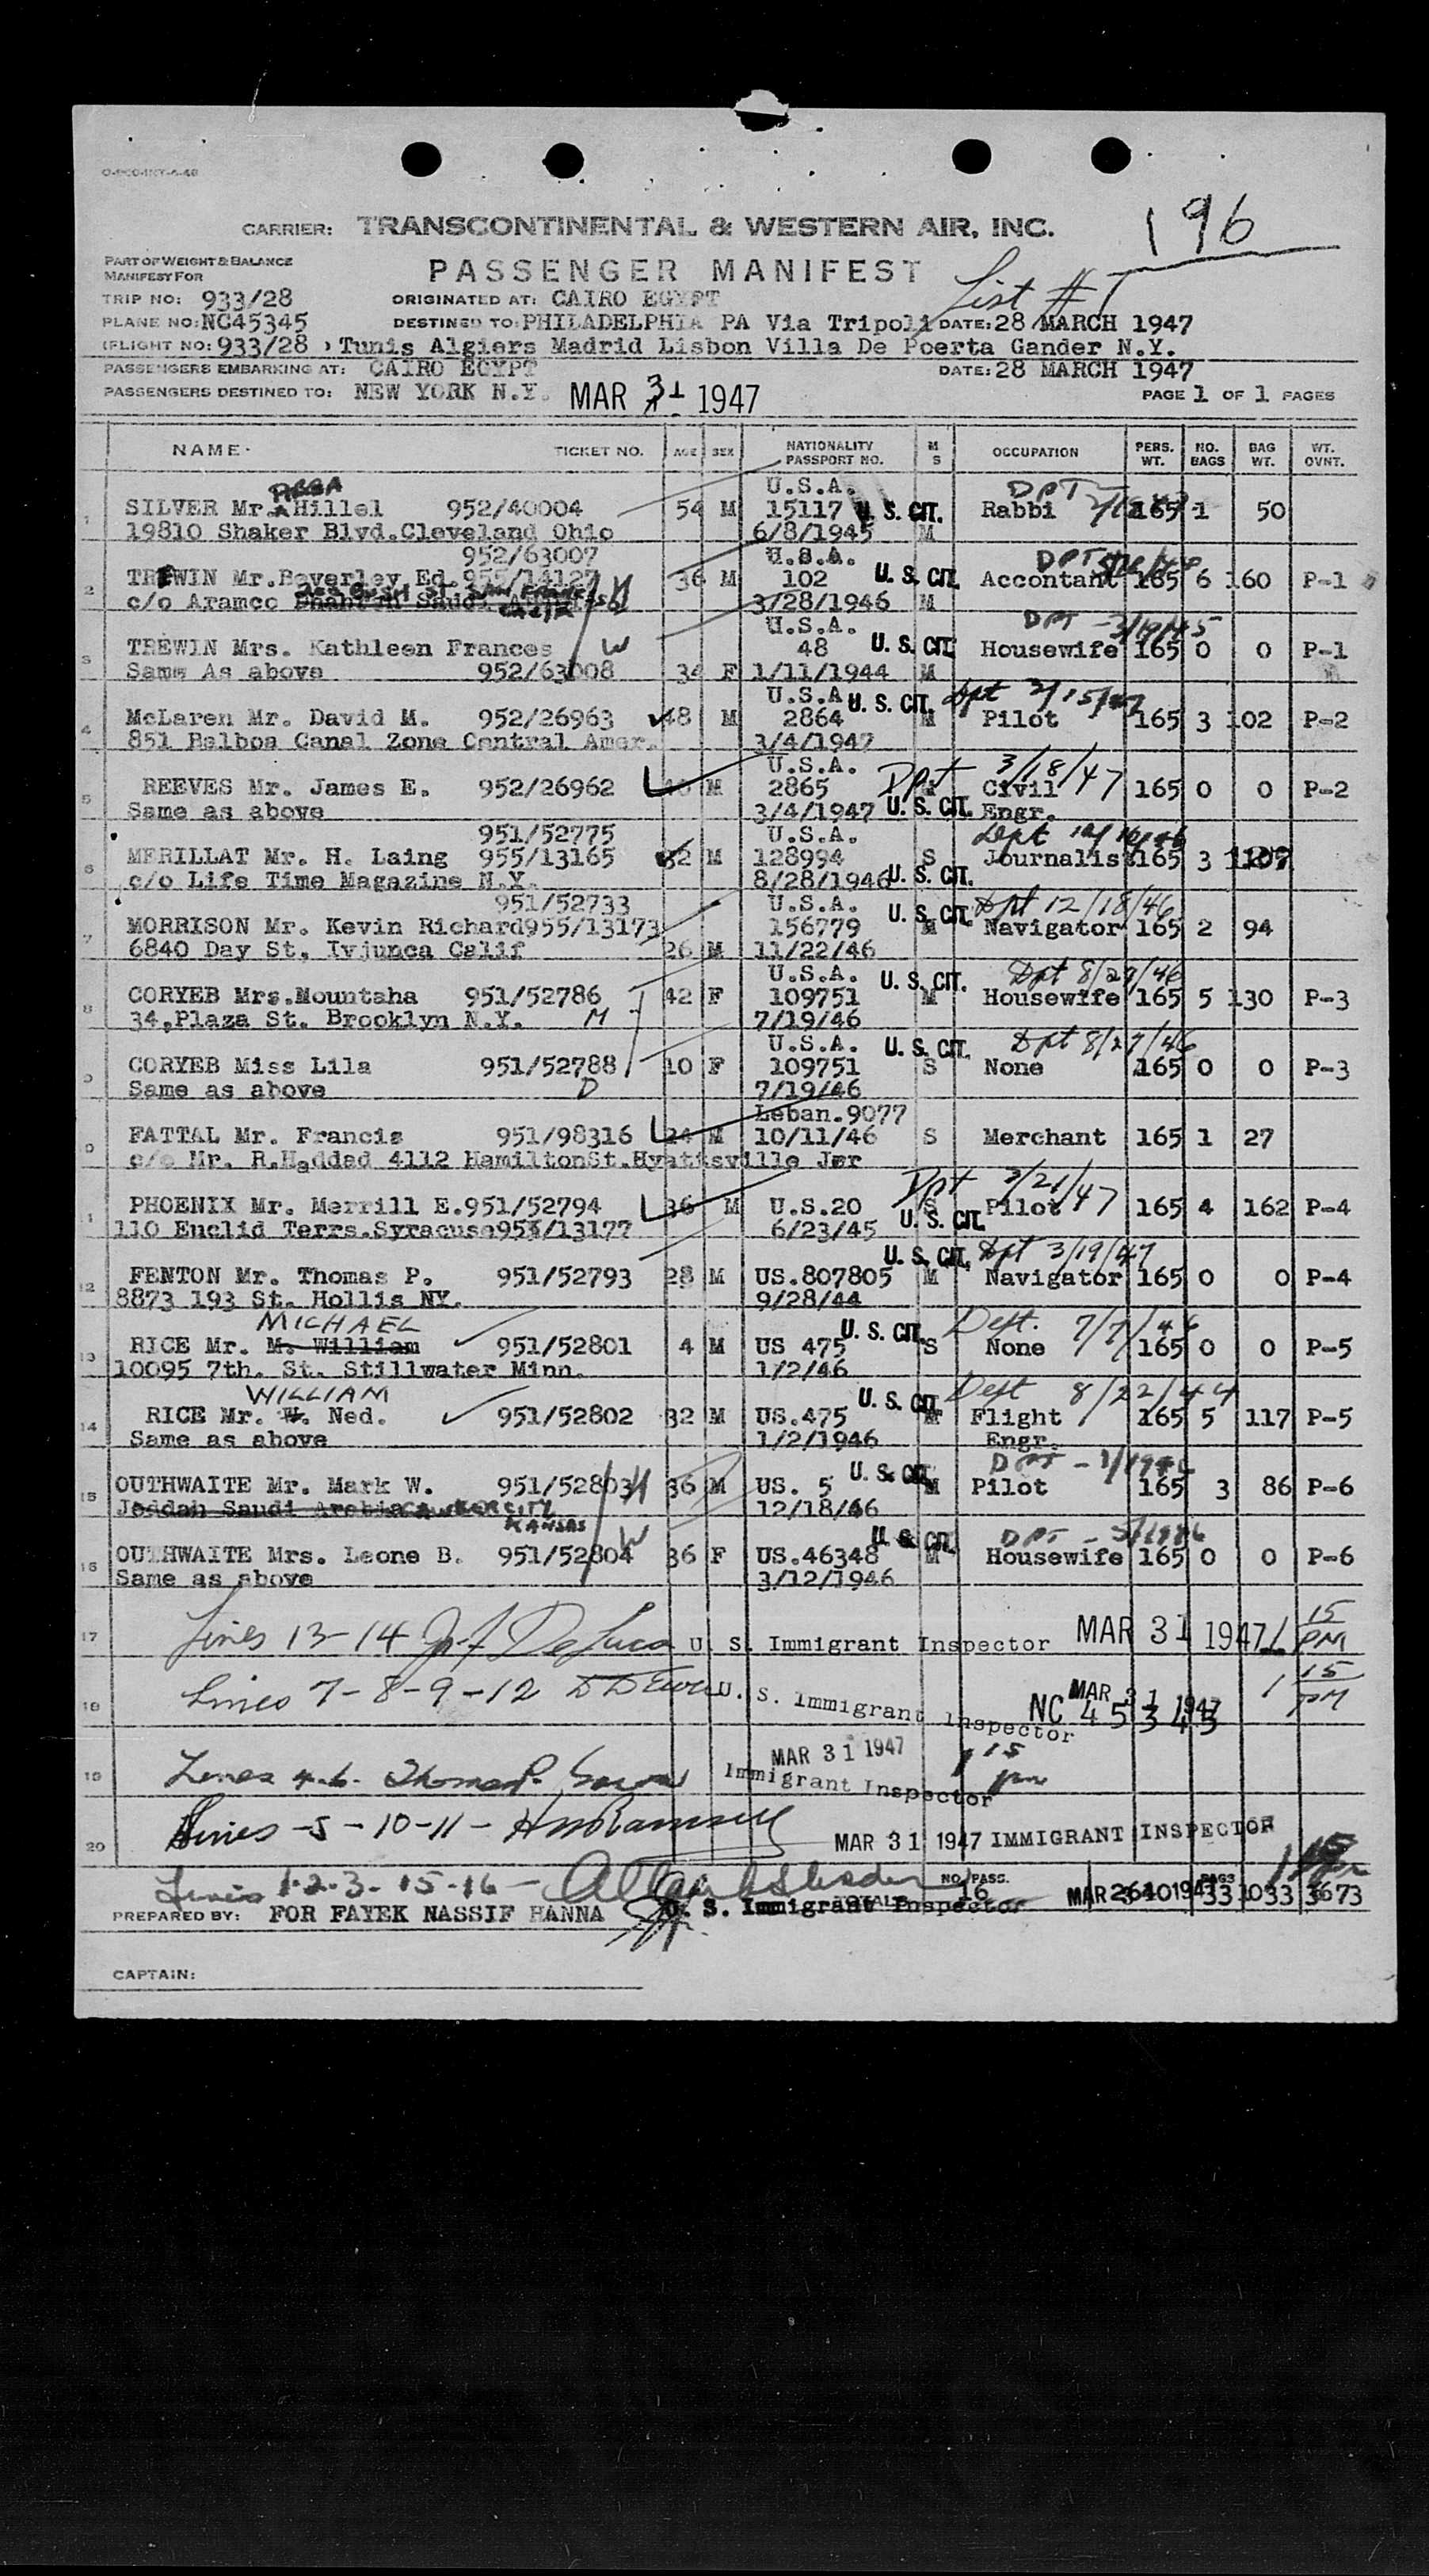 196
CARRIER: TRANSCONTINENTAL & WESTERN AIR, INC.
PART OF WEIGHT & BALANCE
MANIFEST FOR
PASSENGER MANIFEST
List #1
TRIP NO: 933/28 ORIGINATED AT: CAIRO EGYPT
PLANE NO: NC45345 DESTINED TO: PHILADELPHIA PA Via Tripoli DATE: 28 MARCH 1947
(FLIGHT NO: 933/28 ) Tunis Algiers Madrid Lisbon Villa De Poerta Gander N.Y.
PASSENGERS EMBARKING AT: CAIRO EGYPT DATE: 28 MARCH 1947
PASSENGERS DESTINED TO: NEW YORK N.Y. MAR 31 1947 PAGE 1 OF 1 PAGES
NAME TICKET NO. AGE SEX NATIONALITY PASSPORT NO. M S OCCUPATION PERS. WT. NO. BAGS BAG WT. WT. OVNT.
ABBA U.S.A. DPT
1 SILVER Mr. Hillel 952/40004 54 M 15117 U. S. CIT. Rabbi 165 1 50
19810 Shaker Blvd.Cleveland Ohio 6/8/1945 M
952/63007 U.S.A. DPT
2 TREWIN Mr.Beverley Ed. 955/14127 36 M 102 U. S. CIT. Accontant 165 6 160 P-1
c/o Aramco Dhahran Saudi 3/28/1946 M
U.S.A. DPT - 3/19/45
3 TREWIN Mrs. Kathleen Frances W 48 U. S. CIT. Housewife 165 0 0 P-1
Same As above 952/63008 34 F 1/11/1944 M
U.S.A. U. S. CIT. Dpt 2/15/47
4 McLaren Mr. David M. 952/26963 48 M 2864 M Pilot 165 3 102 P-2
851 Balboa Canal Zone Central Amer. 3/4/1947
U.S.A. Dpt 3/18/47
5 REEVES Mr. James E. 952/26962 M 2865 Civil 165 0 0 P-2
Same as above 3/4/1947 U. S. CIT. Engr.
951/52775 U.S.A. Dept
6 MERILLAT Mr. H. Laing 955/13165 32 M 128994 S Journalist 165 3
c/o Life Time Magazine N.Y. 8/28/1946 U. S. CIT.
951/52733 U.S.A. U. S. CIT. Dpt 12/18/46
7 MORRISON Mr. Kevin Richard 955/13173 156779 M Navigator 165 2 94
6840 Day St, Ivjunca Calif 26 M 11/22/46
U.S.A. U. S. CIT. Dpt 8/29/46
8 CORYEB Mrs.Mountaha 951/52786 42 F 109751 M Housewife 165 5 130 P-3
34,Plaza St. Brooklyn N.Y. M 7/19/46
U.S.A. U. S. CIT. Dpt 8/27/46
9 CORYEB Miss Lila 951/52788 10 F 109751 S None 165 0 0 P-3
Same as above D 7/19/46
Leban.9077
0 FATTAL Mr. Francis 951/98316 24 M 10/11/46 S Merchant 165 1 27
c/o Mr. R.Haddad 4112 HamiltonSt.Hyattsville Jer
Dpt 3/21/47
1 PHOENIX Mr. Merrill E. 951/52794 36 M U.S.20 S Pilot 165 4 162 P-4
110 Euclid Terrs.Syracuse 955/13177 6/23/45 U. S. CIT.
U. S. CIT. Dpt 3/19/47
12 FENTON Mr. Thomas P. 951/52793 28 M US.807805 M Navigator 165 0 0 P-4
8873 193 St. Hollis NY. 9/28/44
MICHAEL U. S. CIT. Dept. 7/7/46
13 RICE Mr. M. William 951/52801 4 M US 475 S None 165 0 0 P-5
10095 7th. St. Stillwater Minn. 1/2/46
WILLIAM U. S. CIT Dept 8/22/44
14 RICE Mr. W. Ned. 951/52802 32 M US.475 M Flight 165 5 117 P-5
Same as above 1/2/1946 Engr.
U. S. CIT. DPT
15 OUTHWAITE Mr. Mark W. 951/52803 H 36 M US. 5 M Pilot 165 3 86 P-6
Jeddah Saudi Arabia CAWKER CITY KANSAS 12/18/46
U. S. CIT. DPT
16 OUTHWAITE Mrs. Leone B. 951/52804 W 36 F US.46348 M Housewife 165 0 0 P-6
Same as above 3/12/1946
17 Lines 13-14 DeLuca U. S. Immigrant Inspector MAR 31 1947 1 15 PM
18 Lines 7-8-9-12 U. S. Immigrant Inspector MAR 31 1947 NC 45345 1 15 PM
19 Lines 4.6. Thomas P. MAR 31 1947 Immigrant Inspector 1 15 pm
20 Lines -5-10-11- MAR 31 1947 IMMIGRANT INSPECTOR
Lines 1-2-3-15-16- U. S. Immigrant Inspector TOTALS NO. PASS. 16 2640 BAGS 33 1033 3673
PREPARED BY: FOR FAYEK NASSIF HANNA
CAPTAIN: